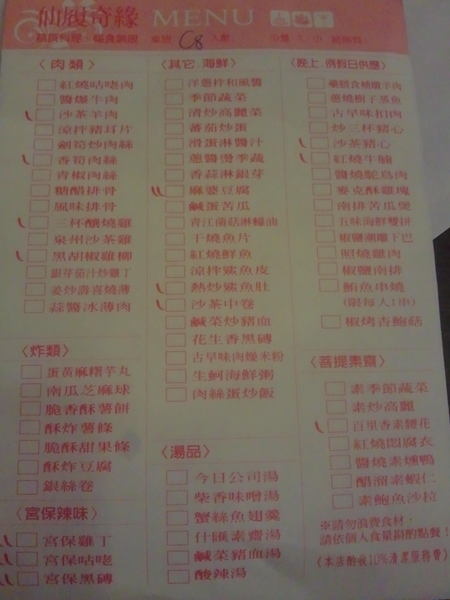 仙履奇緣 MENU
桌號 C8 人數
〈肉類〉
紅燒咕咾肉
醬爆牛肉
沙茶羊肉
涼拌豬耳片
劍筍炒肉絲
香筍肉絲
青椒肉絲
糖醋排骨
風味排骨
三杯釀燒雞
泉州沙茶雞
黑胡椒雞柳
銀芽茄汁炒雞丁
姜炒壽喜燒薄
蒜醬冰薄肉
〈炸類〉
蛋黃麻糬芋丸
南瓜芝麻球
脆香酥薯餅
酥炸薯條
脆酥甜果條
酥炸豆腐
銀絲卷
〈宮保辣味〉
宮保雞丁
宮保咕咾
宮保黑磚
〈其它.海鮮〉
洋蔥拌和風醬
季節蔬菜
清炒高麗菜
蕃茄炒蛋
滑蛋淋醬汁
蔥醬燙季蔬
香蒜淋銀芽
麻婆豆腐
鹹蛋苦瓜
青江菌菇淋蠔油
干燒魚片
紅燒鮮魚
涼拌鯊魚皮
熱炒鯊魚肚
沙茶中卷
鹹菜炒豬血
花生香黑磚
古早味肉燥米粉
生蚵海鮮粥
肉絲蛋炒飯
〈湯品〉
今日公司湯
柴香味噌湯
蟹絲魚翅羹
什匯素齋湯
鹹菜豬血湯
酸辣湯
〈晚上.例假日供應〉
藥膳食補燉羊肉
蔥燒樹子蒸魚
古早味扣肉
炒三杯豬心
沙茶豬心
紅燒牛腩
醬燒駝鳥肉
麥克酥雞塊
南排苦瓜煲
五味海鮮雙拼
椒鹽潮雕下巴
照燒雞肉
椒鹽南排
鮪魚串燒
(限每人1串)
椒烤杏鮑菇
〈菩提素齋〉
素季節蔬菜
素炒高麗
百里香素腰花
紅燒悶腐衣
醬燒素燻鴨
醋溜素蝦仁
素鮑魚沙拉
※請勿浪費食材，
請依個人食量斟酌點餐！
(本店酌收10%清潔服務費)